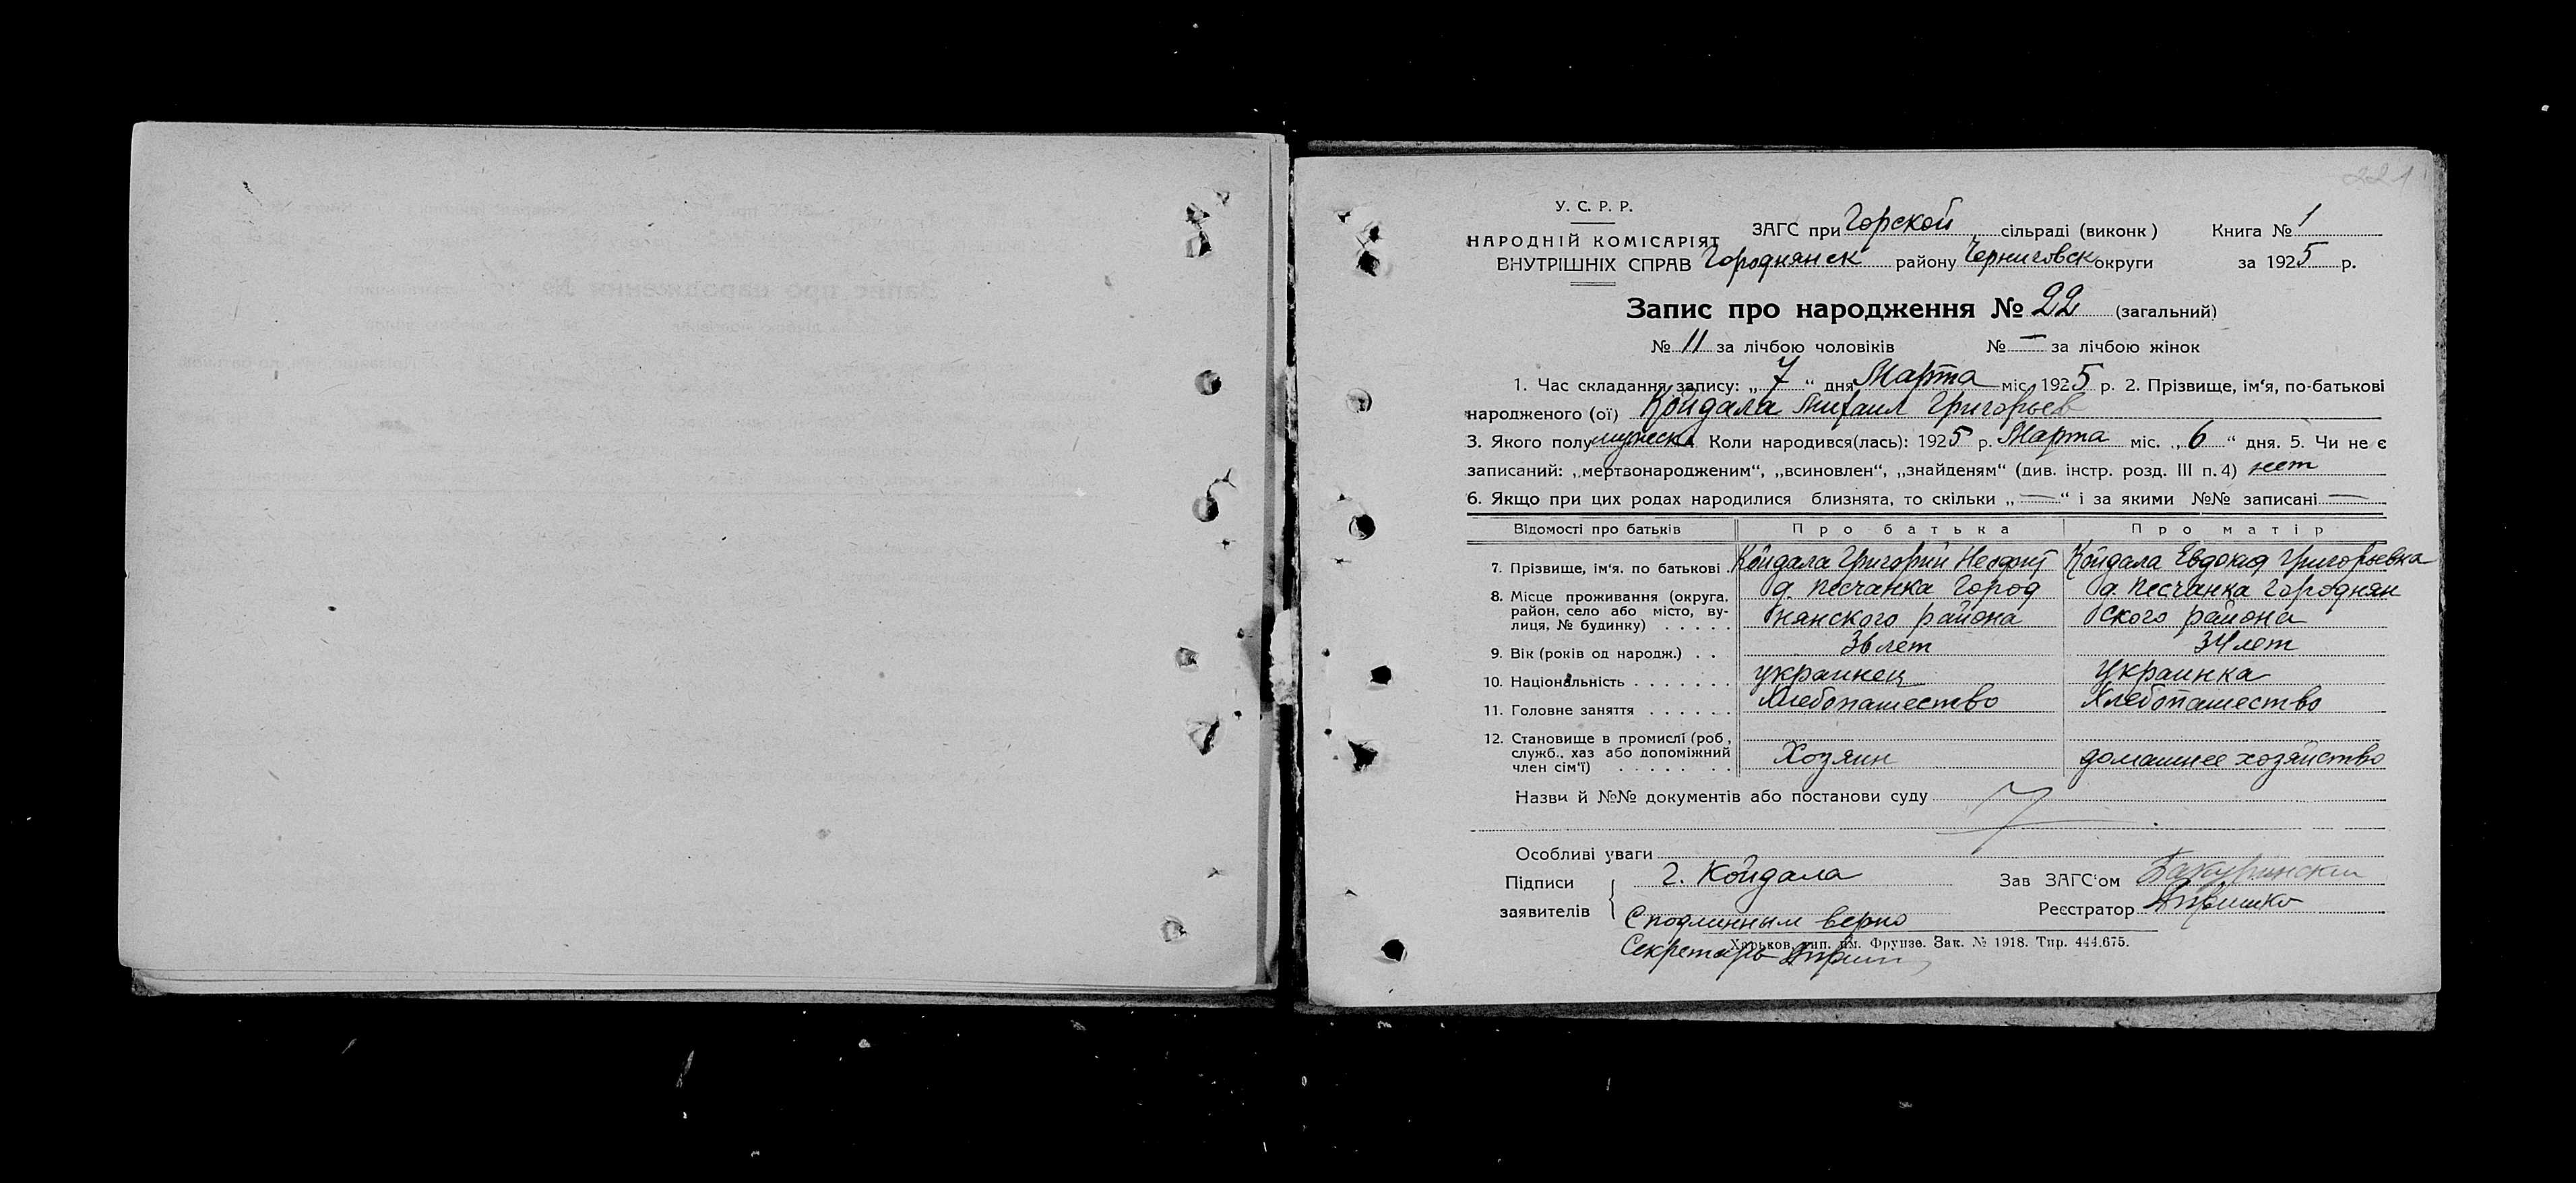 221
У. С. Р. Р.
НАРОДНІЙ КОМІСАРІЯТ
ВНУТРІШНІХ СПРАВ
ЗАГС при Горской сільраді (виконк) Книга № 1
Городнянск району Черниговск округи за 1925 р.
Запис про народження № 22 (загальний)
№ 11 за лічбою чоловіків № — за лічбою жінок
1. Час складання запису: „ 7 “ дня Марта міс. 1925 р. 2. Прізвище, ім‘я, по-батькові
народженого (ої) Койдала Михаил Григорьев
3. Якого полу мужеск. Коли народився(лась): 1925 р. Марта міс. „ 6 “ дня. 5. Чи не є
записаний: „мертвонародженим“, „всиновлен“, „знайденям“ (див. інстр. розд. III п. 4) нет
6. Якщо при цих родах народилися близнята, то скільки „ — “ і за якими №№ записані —
Відомості про батьків Про батька Про матір
7. Прізвище, ім‘я. по батькові Койдала Григорий Койдала Евдокия Григорьевна
8. Місце проживання (округа, д. Песчанка Город д. Песчанка Городнян
район, село або місто, ву- нянского района ского района
лиця, № будинку)
9. Вік (років од народж.) 36 лет 34 лет
10. Національність украинец украинка
11. Головне заняття Хлебопашество Хлебопашество
12. Становище в промислі (роб.,
служб., хаз або допоміжний Хозяин домашнее хозяйство
член сім‘ї)
Назви й №№ документів або постанови суду
Особливі уваги
Підписи Г. Койдала Зав ЗАГС‘ом
заявителів Реєстратор
С подлинным верно
Харьков, тип. им. Фрунзе. Зак. № 1918. Тир. 444.675.
Секретарь